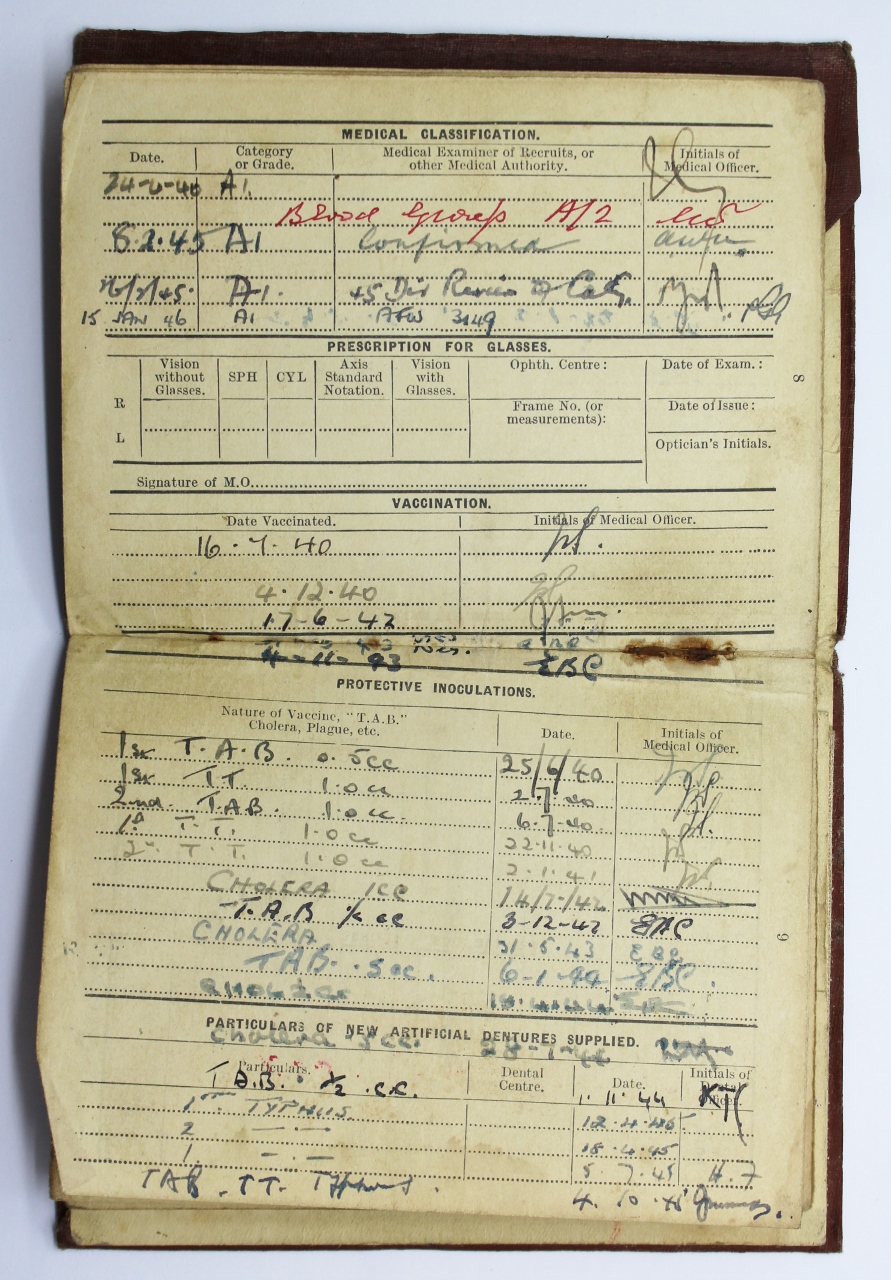 MEDICAL CLASSIFICATION.
Date. Category or Grade. Medical Examiner of Recruits, or other Medical Authority. Initials of Medical Officer.
24-6-40 A1.
Blood Group A/2
8.2.45 A1 Confirmed
A1. 45 Div Review of Cat.
15 JAN 46 A1 AFW 3149
PRESCRIPTION FOR GLASSES.
Vision without Glasses. SPH CYL Axis Standard Notation. Vision with Glasses. Ophth. Centre: Date of Exam.:
R Frame No. (or measurements): Date of Issue:
L Optician's Initials.
Signature of M.O.
8
VACCINATION.
Date Vaccinated. Initials of Medical Officer.
16-7-40
4.12.40
17-6-42
4-11-43 EBC
PROTECTIVE INOCULATIONS.
Nature of Vaccine, "T.A.B." Cholera, Plague, etc. Date. Initials of Medical Officer.
1st T.A.B. 0.5cc 25/6/40
1st T.T. 1.0cc
2nd. TAB. 1.0cc. 6-7-40.
1st T.T. 1.0cc 22.11.40
2nd T.T. 1.0cc 2.1.41
CHOLERA 1cc 14/7/42
T.A.B ½ cc 3-12-42
CHOLERA 31.5.43
TAB. .5cc. 6-1-44 EBC.
9
PARTICULARS OF NEW ARTIFICIAL DENTURES SUPPLIED.
Cholera 28-7-44
Particulars. Dental Centre. Date. Initials of Dental Officer.
T.A.B. ½ c.c. 1.11.44
1 TYPHUS 12.4.45
2 18.4.45
1. 5.7.45 H.F
TAB. TT. Typhus. 4.10.45